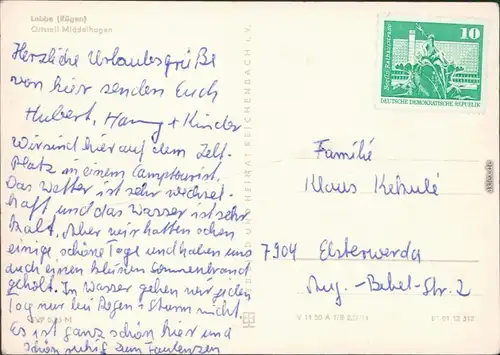 Lobbe (Rügen)
Ortsteil Middelhagen
Herzliche Urlaubsgrüße
von hier senden Euch
Hubert, + Kinder
Wir sind hier auf dem Zelt-
Platz in einem Camptourist.
Das Wetter ist sehr wechsel-
haft und das Wasser ist sehr
kalt. Aber wir hatten schon
einige schöne Tage und haben uns
auch einen kleinen Sonnenbrand
geholt. In Wasser gehen wir jeden
Tag nur bei Regen + Sturm nicht.
Es ist ganz schön hier und
schön ruhig zum Faulenzen
BILD UND HEIMAT REICHENBACH I. V.
10
Berlin, Rathausstraße
DEUTSCHE DEMOKRATISCHE REPUBLIK
Familie
Klaus Kekulé
7904 Elsterwerda
Aug.-Bebel-Str. 2
V 11 50 A 1/B
01 01 12 312